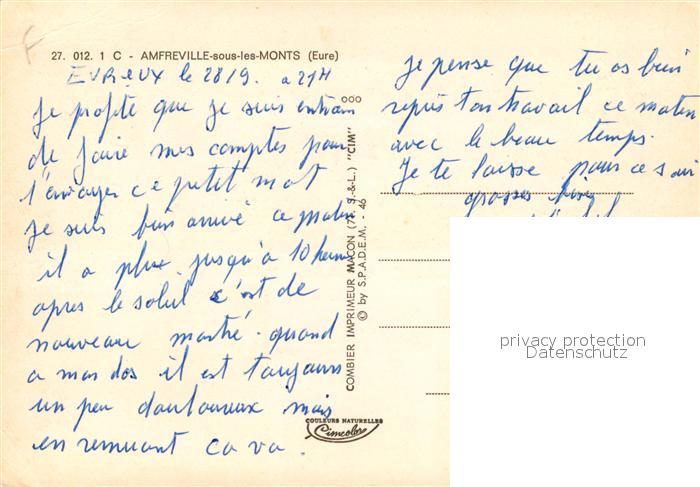 F
27. 012. 1 C - AMFREVILLE-sous-les-MONTS (Eure)
EVREUX le 28/9. a 21H
Je profite que je suis entrain
de faire mes comptes pour
t'envoyer ce petit mot
Je suis bien arrivé ce matin
il a plu jusqu'à 10 heures
apres le soleil c'est de
nouveau montré. quand
a mon dos il est toujours
un peu douloureux mais
en remuant ca va.
je pense que tu as bien
repris ton travail ce matin
avec le beau temps.
Je te laisse pour ce soir
grosses bises
COMBIER IMPRIMEUR MACON (71. S.-&-L.) "CIM"
© by S.P.A.D.E.M. - 46
COULEURS NATURELLES
Cimcolor
privacy protection
Datenschutz